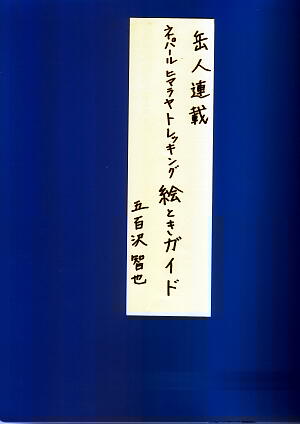 岳人連載
ネパールヒマラヤトレッキング絵ときガイド
五百沢智也